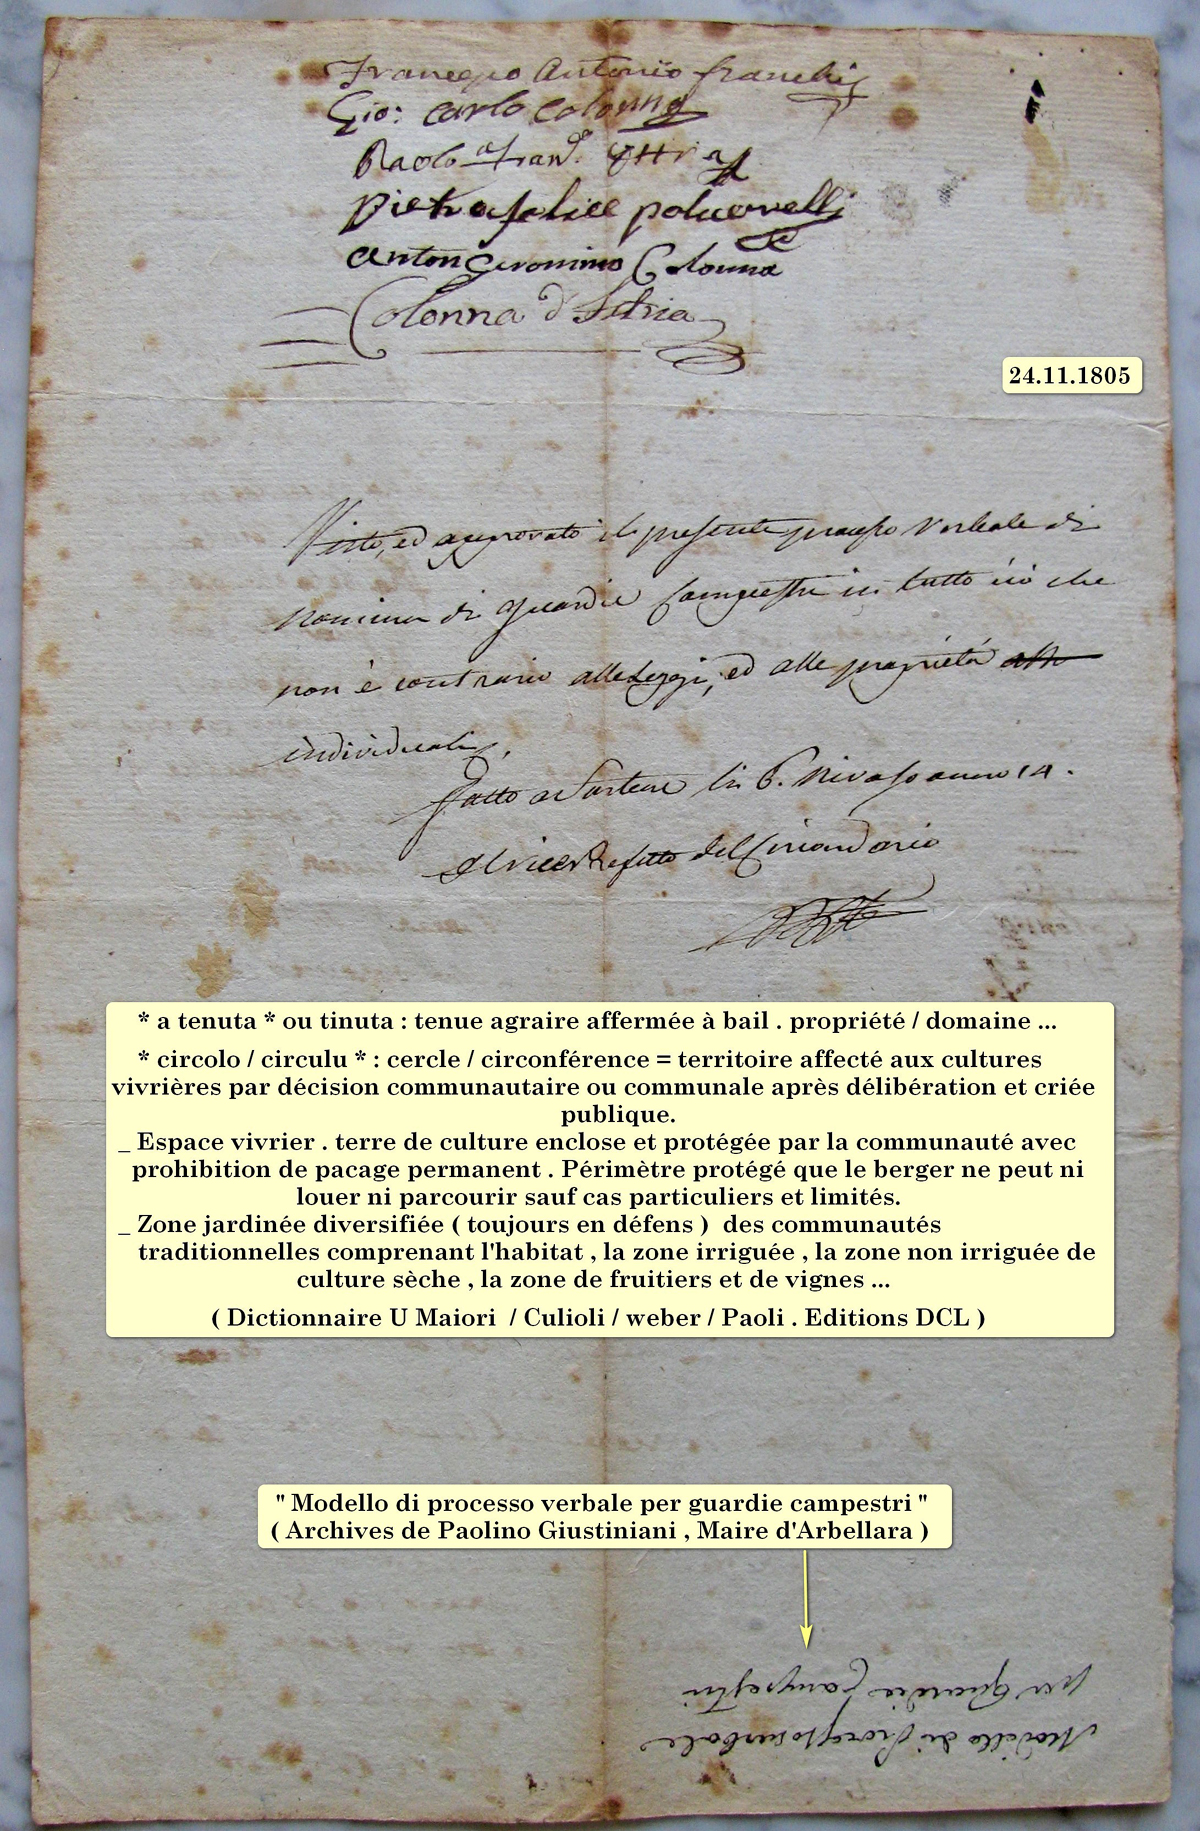 Francesco Antonio franchi
Gio: Carlo Colonna
Paolo
Pietro felice poluerelli
Anton Geronimo Colonna
Colonna d'Istria
24.11.1805
Visto, ed approvato il presente processo Verbale di
nomina di guardie Campestri in tutto ciò che
non è contrario alle Leggi, ed alle proprietà
individuali,
Fatto a Sartene li 6. Nivoso anno 14.
Il vice Prefetto del Circondario
* a tenuta * ou tinuta : tenue agraire affermée à bail . propriété / domaine ...
* circolo / circulu * : cercle / circonférence = territoire affecté aux cultures
vivrières par décision communautaire ou communale après délibération et criée
publique.
_ Espace vivrier . terre de culture enclose et protégée par la communauté avec
prohibition de pacage permanent . Périmètre protégé que le berger ne peut ni
louer ni parcourir sauf cas particuliers et limités.
_ Zone jardinée diversifiée ( toujours en défens ) des communautés
traditionnelles comprenant l'habitat , la zone irriguée , la zone non irriguée de
culture sèche , la zone de fruitiers et de vignes ...
( Dictionnaire U Maiori / Culioli / weber / Paoli . Editions DCL )
" Modello di processo verbale per guardie campestri "
( Archives de Paolino Giustiniani , Maire d'Arbellara )
Modello di Processo verbale
per Guardie Campestri